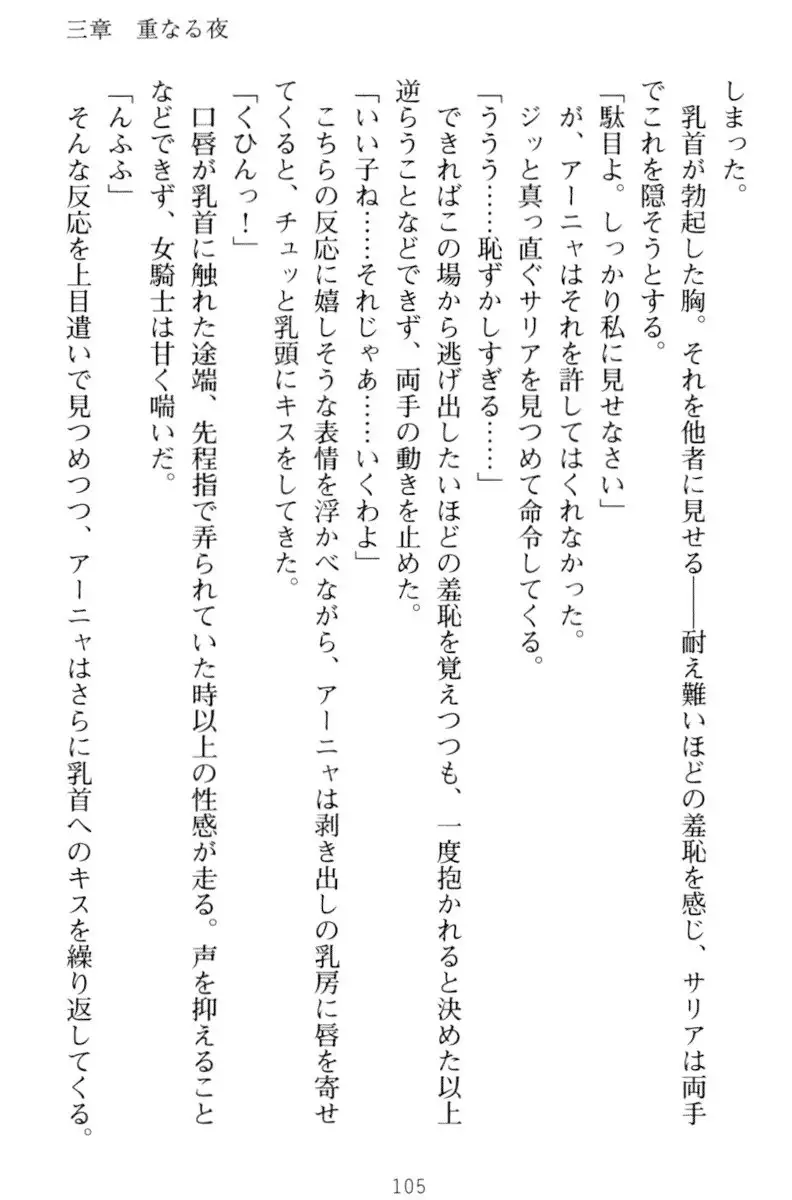 三章　重なる夜
しまった。
　乳首が勃起した胸。それを他者に見せる――耐え難いほどの羞恥を感じ、サリアは両手
でこれを隠そうとする。
「駄目よ。しっかり私に見せなさい」
　が、アーニャはそれを許してはくれなかった。
　ジッと真っ直ぐサリアを見つめて命令してくる。
「ううう……恥ずかしすぎる……」
　できればこの場から逃げ出したいほどの羞恥を覚えつつも、一度抱かれると決めた以上
逆らうことなどできず、両手の動きを止めた。
「いい子ね……それじゃあ……いくわよ」
　こちらの反応に嬉しそうな表情を浮かべながら、アーニャは剥き出しの乳房に唇を寄せ
てくると、チュッと乳頭にキスをしてきた。
「くひんっ！」
　口唇が乳首に触れた途端、先程指で弄られていた時以上の性感が走る。声を抑えること
などできず、女騎士は甘く喘いだ。
「んふふ」
　そんな反応を上目遣いで見つめつつ、アーニャはさらに乳首へのキスを繰り返してくる。
105